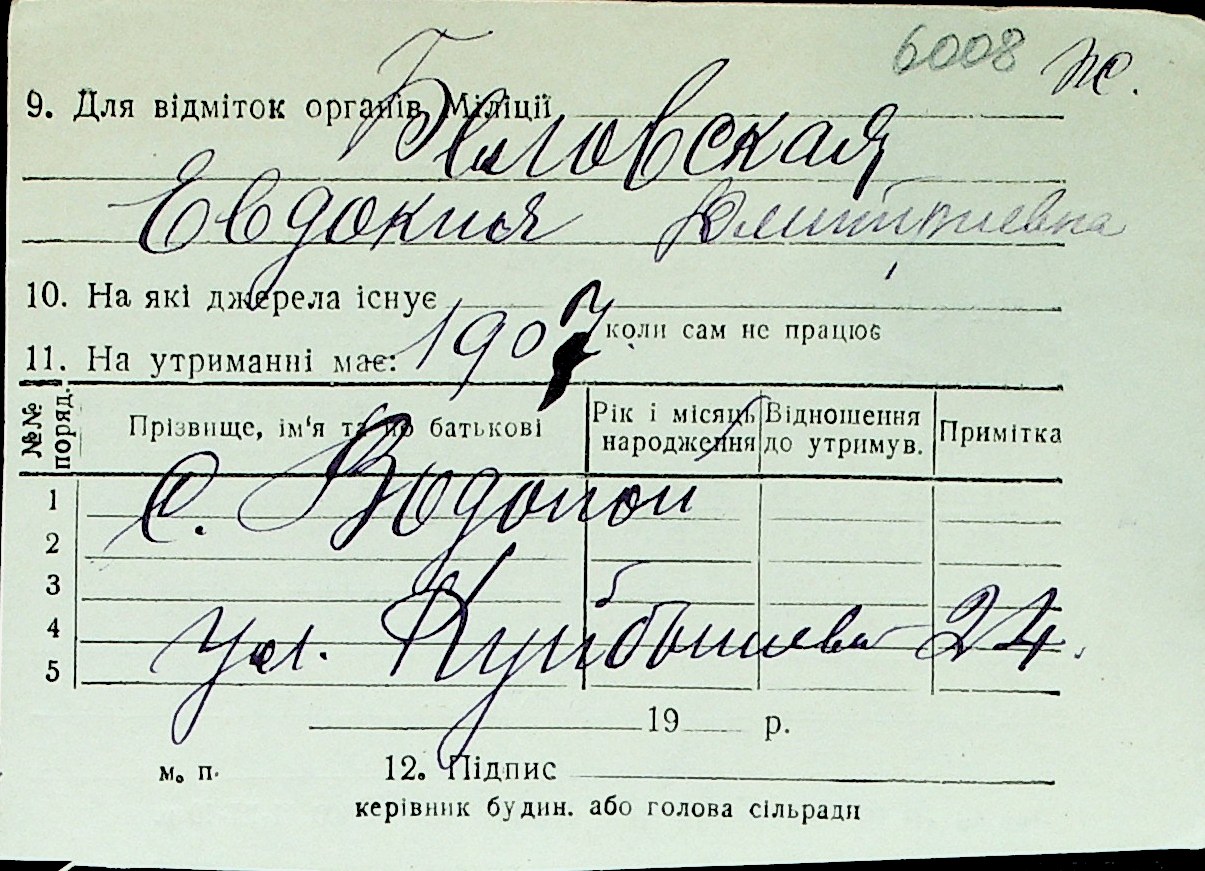 6008 ж.
9. Для відміток органів Міліції
Беловская
Евдокия Дмитриевна
10. На які джерела існує
коли сам не працює
11. На утриманні має: 1907
№№ поряд.
Прізвище, ім'я та по батькові
Рік і місяць народження
Відношення до утримув.
Примітка
1
с. Водопой
2
3
4 ул. Куйбышева 24.
5
19 р.
м. п. 12. Підпис
керівник будин. або голова сільради